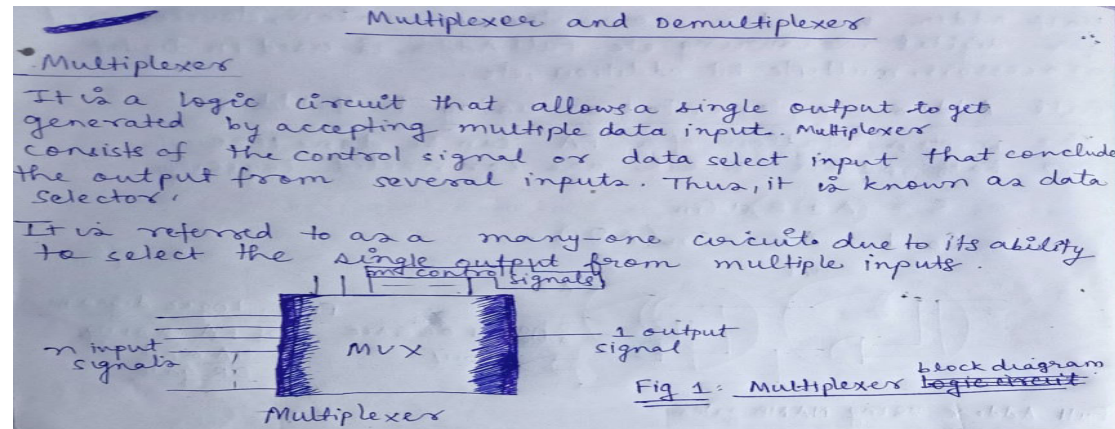 Multiplexer and Demultiplexer
Multiplexer
It is a logic circuit that allows a single output to get
generated by accepting multiple data input. Multiplexer
consists of the control signal or data select input that conclude
the output from several inputs. Thus, it is known as data
selector.
It is referred to as a many-one circuit due to its ability
to select the single output from multiple inputs.
control signals
n input
signals
MUX
1 output
signal
block diagram
Fig 1: Multiplexer logic circuit
Multiplexer